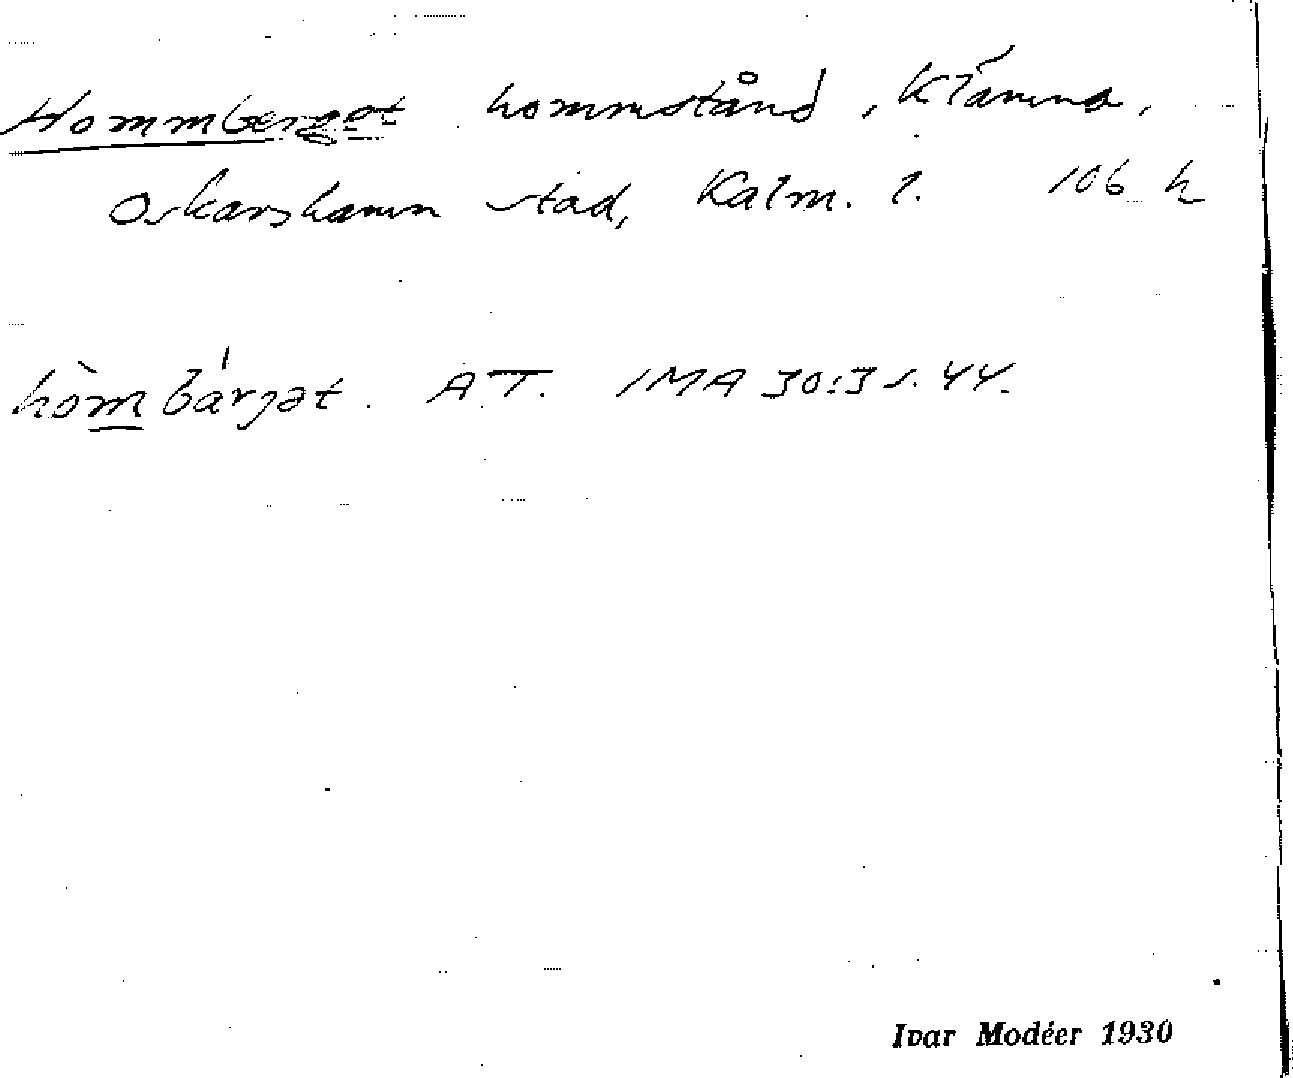 Hommberget hommstånd, Klämna,
Oskarshamn stad, Kalm. l. 106 h
hòmbárjət. AT. IMA 30:3 s. 44.
Ivar Modéer 1930